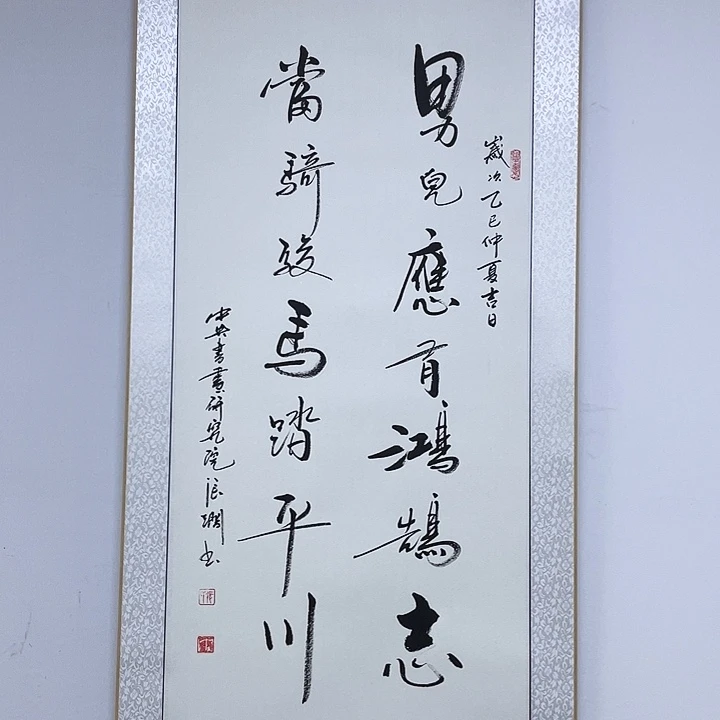 歲次乙巳仲夏吉日
男兒應有鴻鵠志
當騎駿馬踏平川
中央書畫研究院张澗书